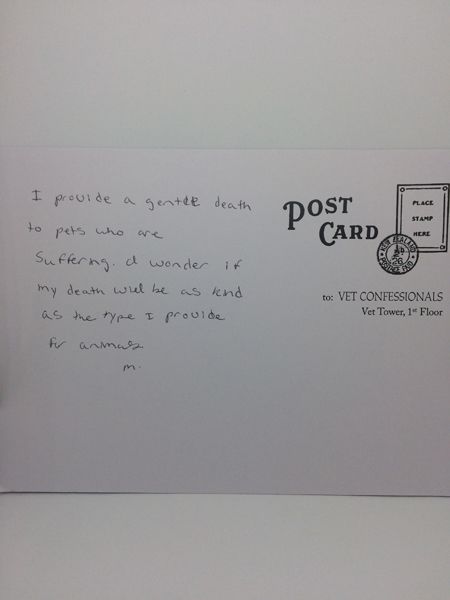 I provide a gentle death
to pets who are
suffering. I wonder if
my death will be as kind
as the type I provide
for animals
m.
POST
CARD
PLACE
STAMP
HERE
NEW ZEALAND
POSTAGE PAID
to: VET CONFESSIONALS
Vet Tower, 1st Floor